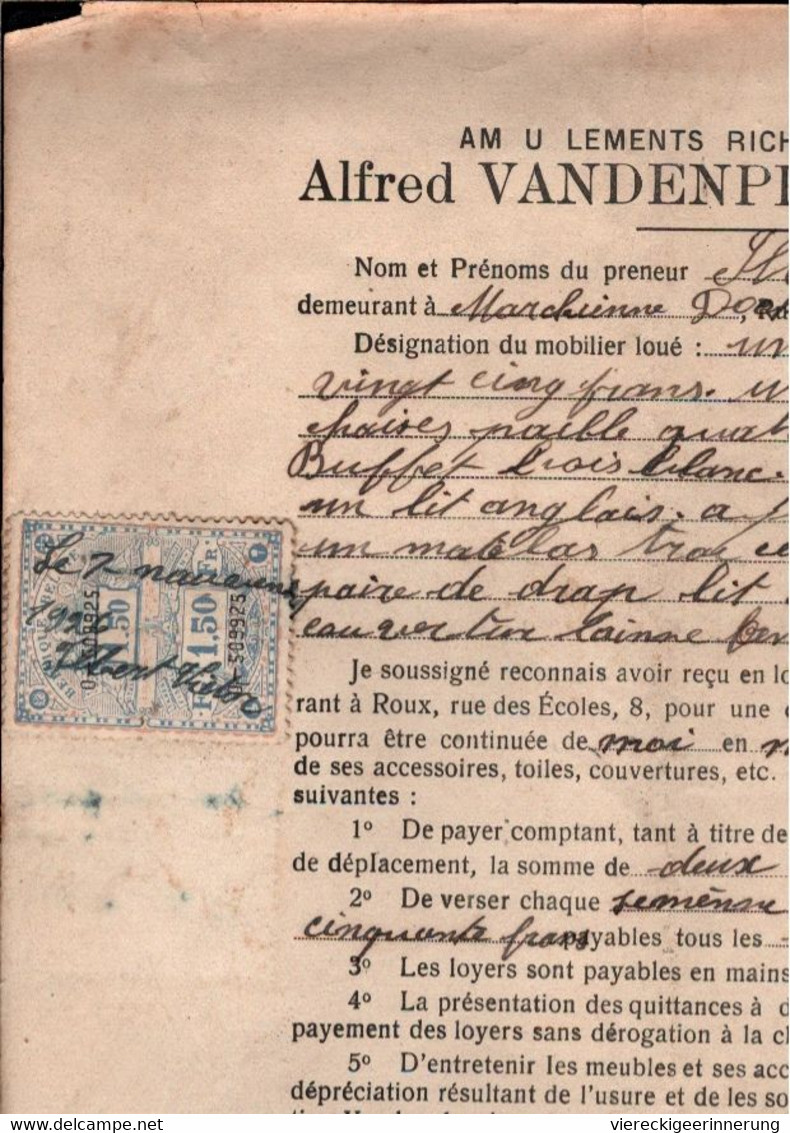 AM U LEMENTS RICH
Alfred VANDENP
Nom et Prénoms du preneur
demeurant à Marchienne Doc
Désignation du mobilier loué : un
vingt cinq frans. u
chaises paible quat
Buffet bois blanc.
un lit anglais. a
un matelas troc ce
paire de drap lit
couvertur lainne
Je soussigné reconnais avoir reçu en lo
rant à Roux, rue des Écoles, 8, pour une
pourra être continuée de moi en
de ses accessoires, toiles, couvertures, etc.
suivantes :
1º De payer comptant, tant à titre de
de déplacement, la somme de deux
2º De verser chaque semènne
cinquante frans payables tous les
3º Les loyers sont payables en mains
4º La présentation des quittances à d
payement des loyers sans dérogation à la cl
5º D'entretenir les meubles et ses acc
dépréciation résultant de l'usure et de les so
Le 7 navenne
1926
Albert Victor
1.50
FR 1.50 FR
509925
509925
Delcampe.net
viereckigeerinnerung